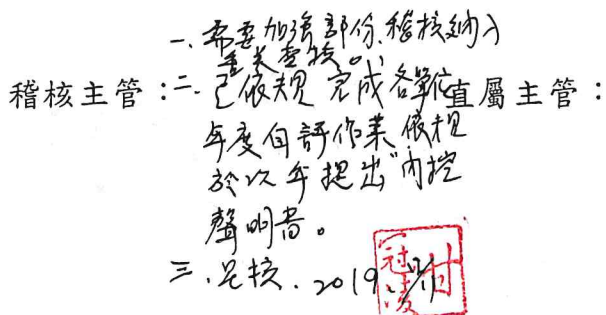 一、需要加強部份,稽核納入
重点查核。
稽核主管:二、已依規完成各單位 直屬主管:
年度自評作業依規
於次年提出"內控
聲明書。
三、呈核. 2019